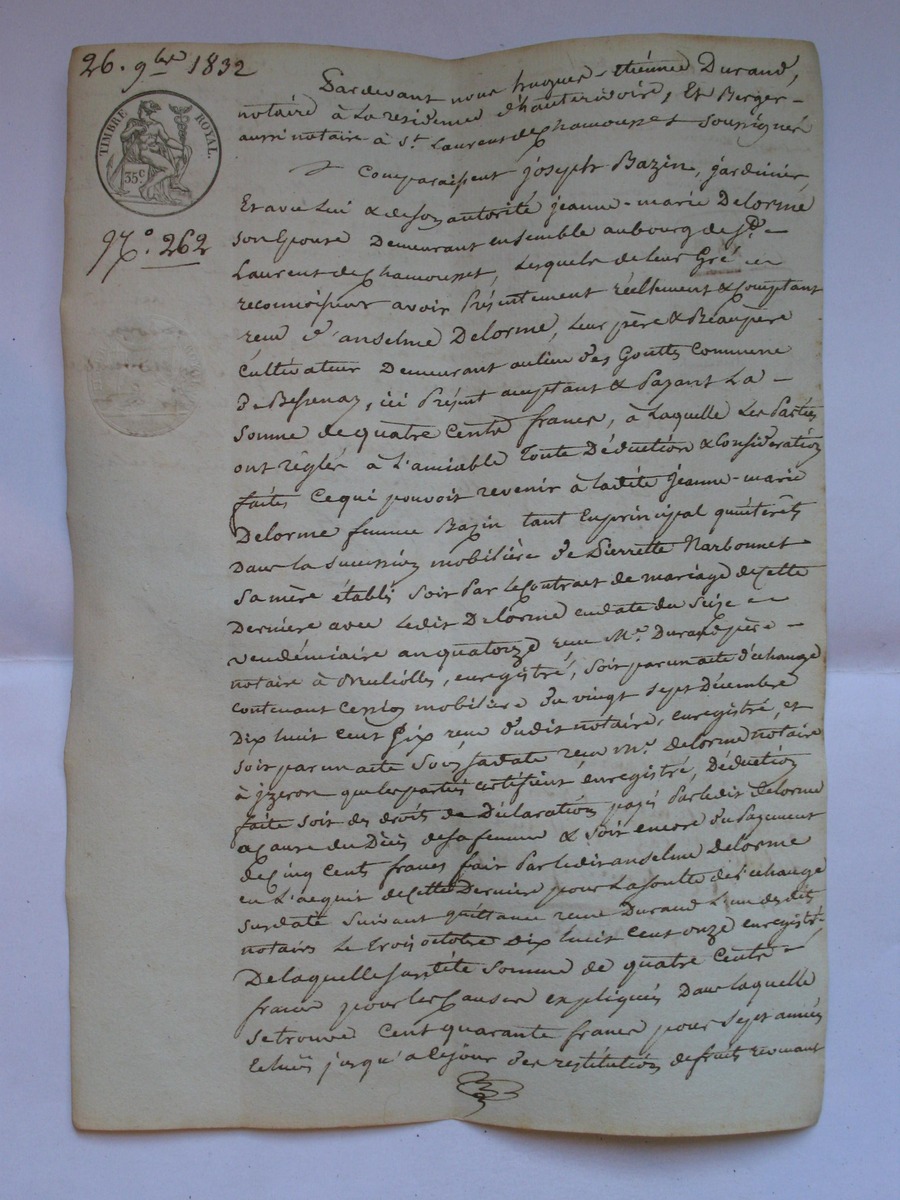 26. 9bre 1832
TIMBRE ROYAL.
35c
No. 262
Pardevant nous hugues-etiénne Durand,
notaire à La residence d'hauterivoire, Et Berger
aussi notaire à St. Laurent de chamousset soussignés
Comparaissent joseph Bazin, jardinier
Et avec Lui & de son autorité jeanne-marie Delorme
son Epouse Demeurant ensemble au bourg de St.
Laurent de chamousset, Lesquels de leur Gré
reconnoissent avoir Présentement réellement & comptant
reçu d'anselme Delorme, Leur père & Beaupère
Cultivateur Demeurant au lieu des Gouttes Commune
De Bessenay, ici Présent acceptant & Payant La
Somme de quatre Cents francs, à Laquelle Les Parties
ont règlés à L'amiable Toute Déduction & Considération
faites Ce qui pouvoit revenir à ladite Jeanne-marie
Delorme femme Bazin tant En principal qu'intérêts
Dans la succession mobilière de Pierrette Narbonnet
Sa mère établi Soit Par Le Contrat de mariage de Cette
Dernière avec Ledit Delorme en date du Seize
vendémiaire an quatorze reçu Me. Durand père
notaire à enregistré, Soit par un acte d'échange
contenant Cession mobilière du vingt sept Décembre
Dix huit Cent Six reçu dudit notaire, enregistré, et
Soit par un acte Sous sa date reçu Me. Delorme notaire
à jzeron que les parties certifient enregistré, Déduction
faite soit des droits de Déclaration payés Par ledit Delorme
a Cause du Décès de sa femme & soit encore du Payement
de Cinq Cents francs fait Par ledit anselme Delorme
en L'acquit de Cette Dernière pour La soulte de l'échange
susdaté suivant quittance reçue Durand L'un desdits
notaires Le Trois octobre Dix huit Cent onze enregistré
De laquelle susdite Somme de quatre Cents
francs pour les Causes expliquées Dans laquelle
Se trouve Cent quarante francs pour Sept années
Echues jusqu'a Ce jour des restitutions de fruits revenant